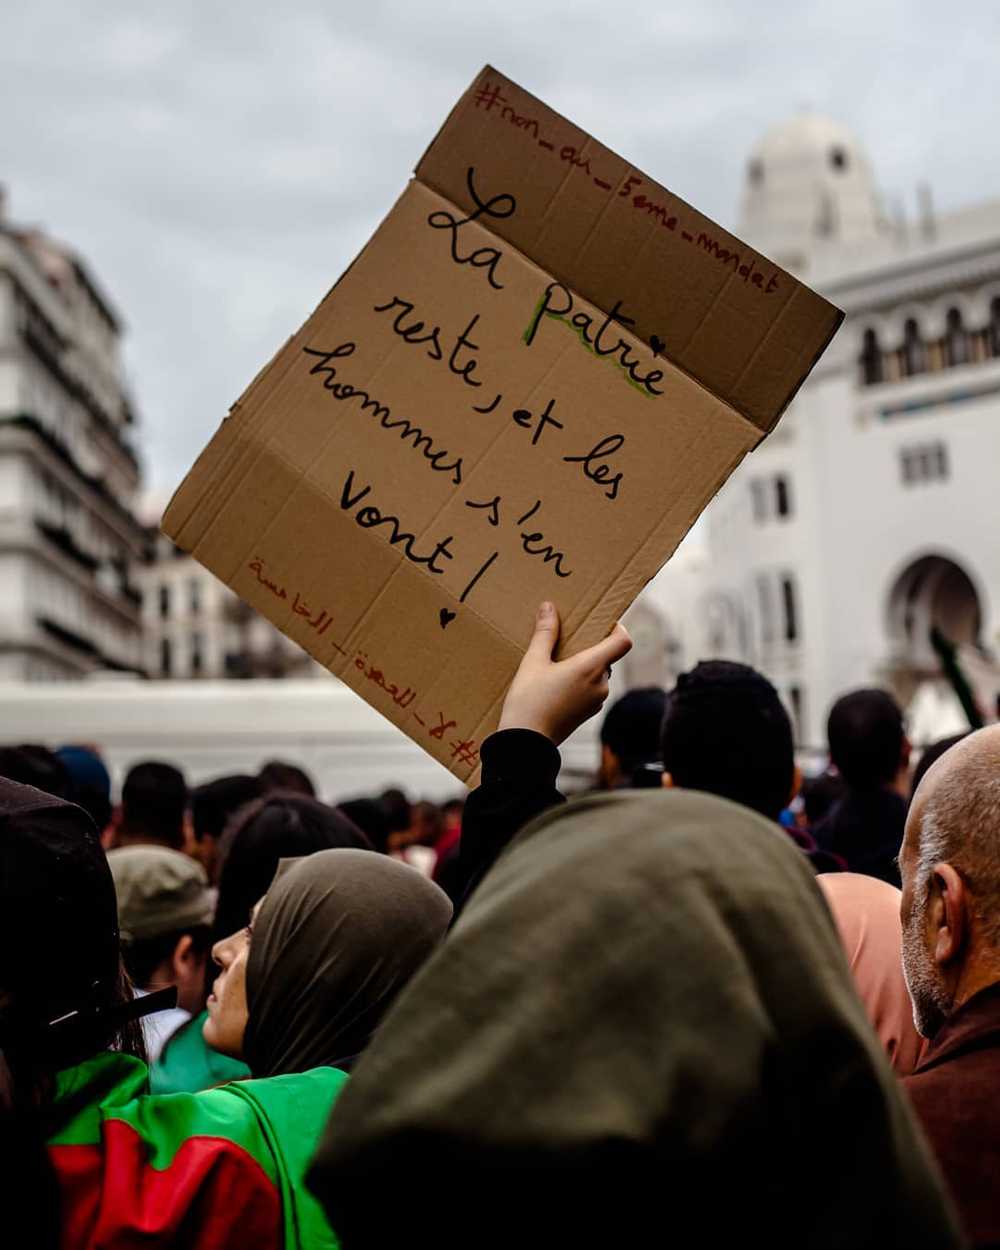 #non_au_5eme_mandat
La patrie
reste, et les
hommes s'en
vont !
#لا_للعهدة_الخامسة